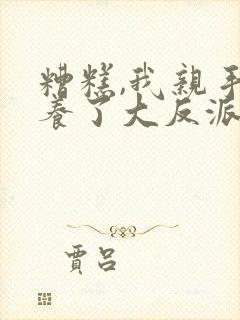 糟糕,我親手
養了大反派
賈呂